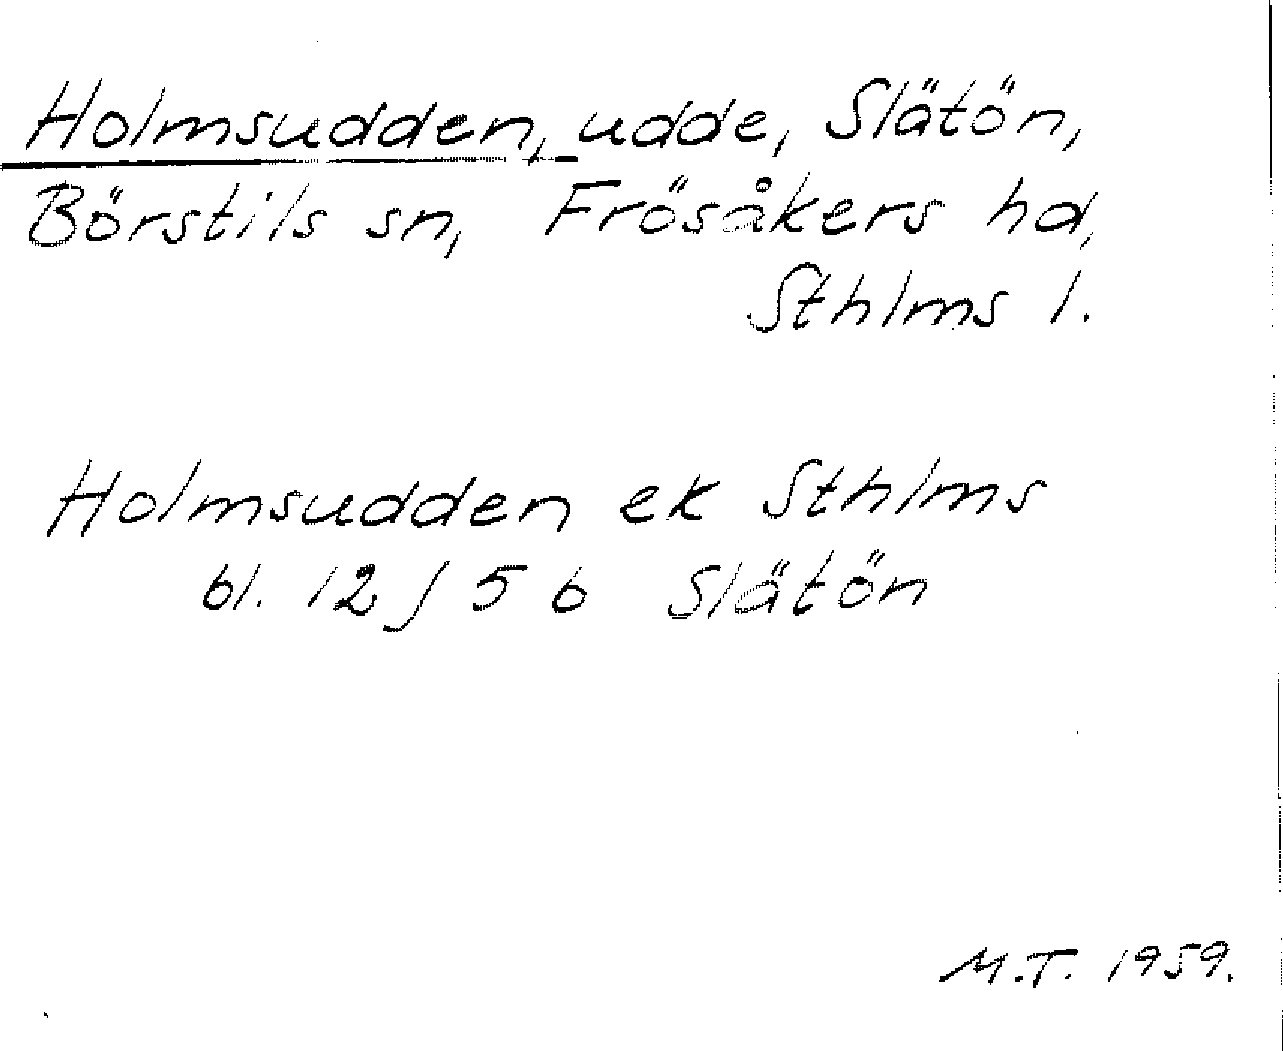 Holmsudden, udde, Slätön,
Börstils sn, Frösåkers hd,
Sthlms l.
Holmsudden ek Sthlms
bl. 12 J 5 b Slätön
M.T. 1959.